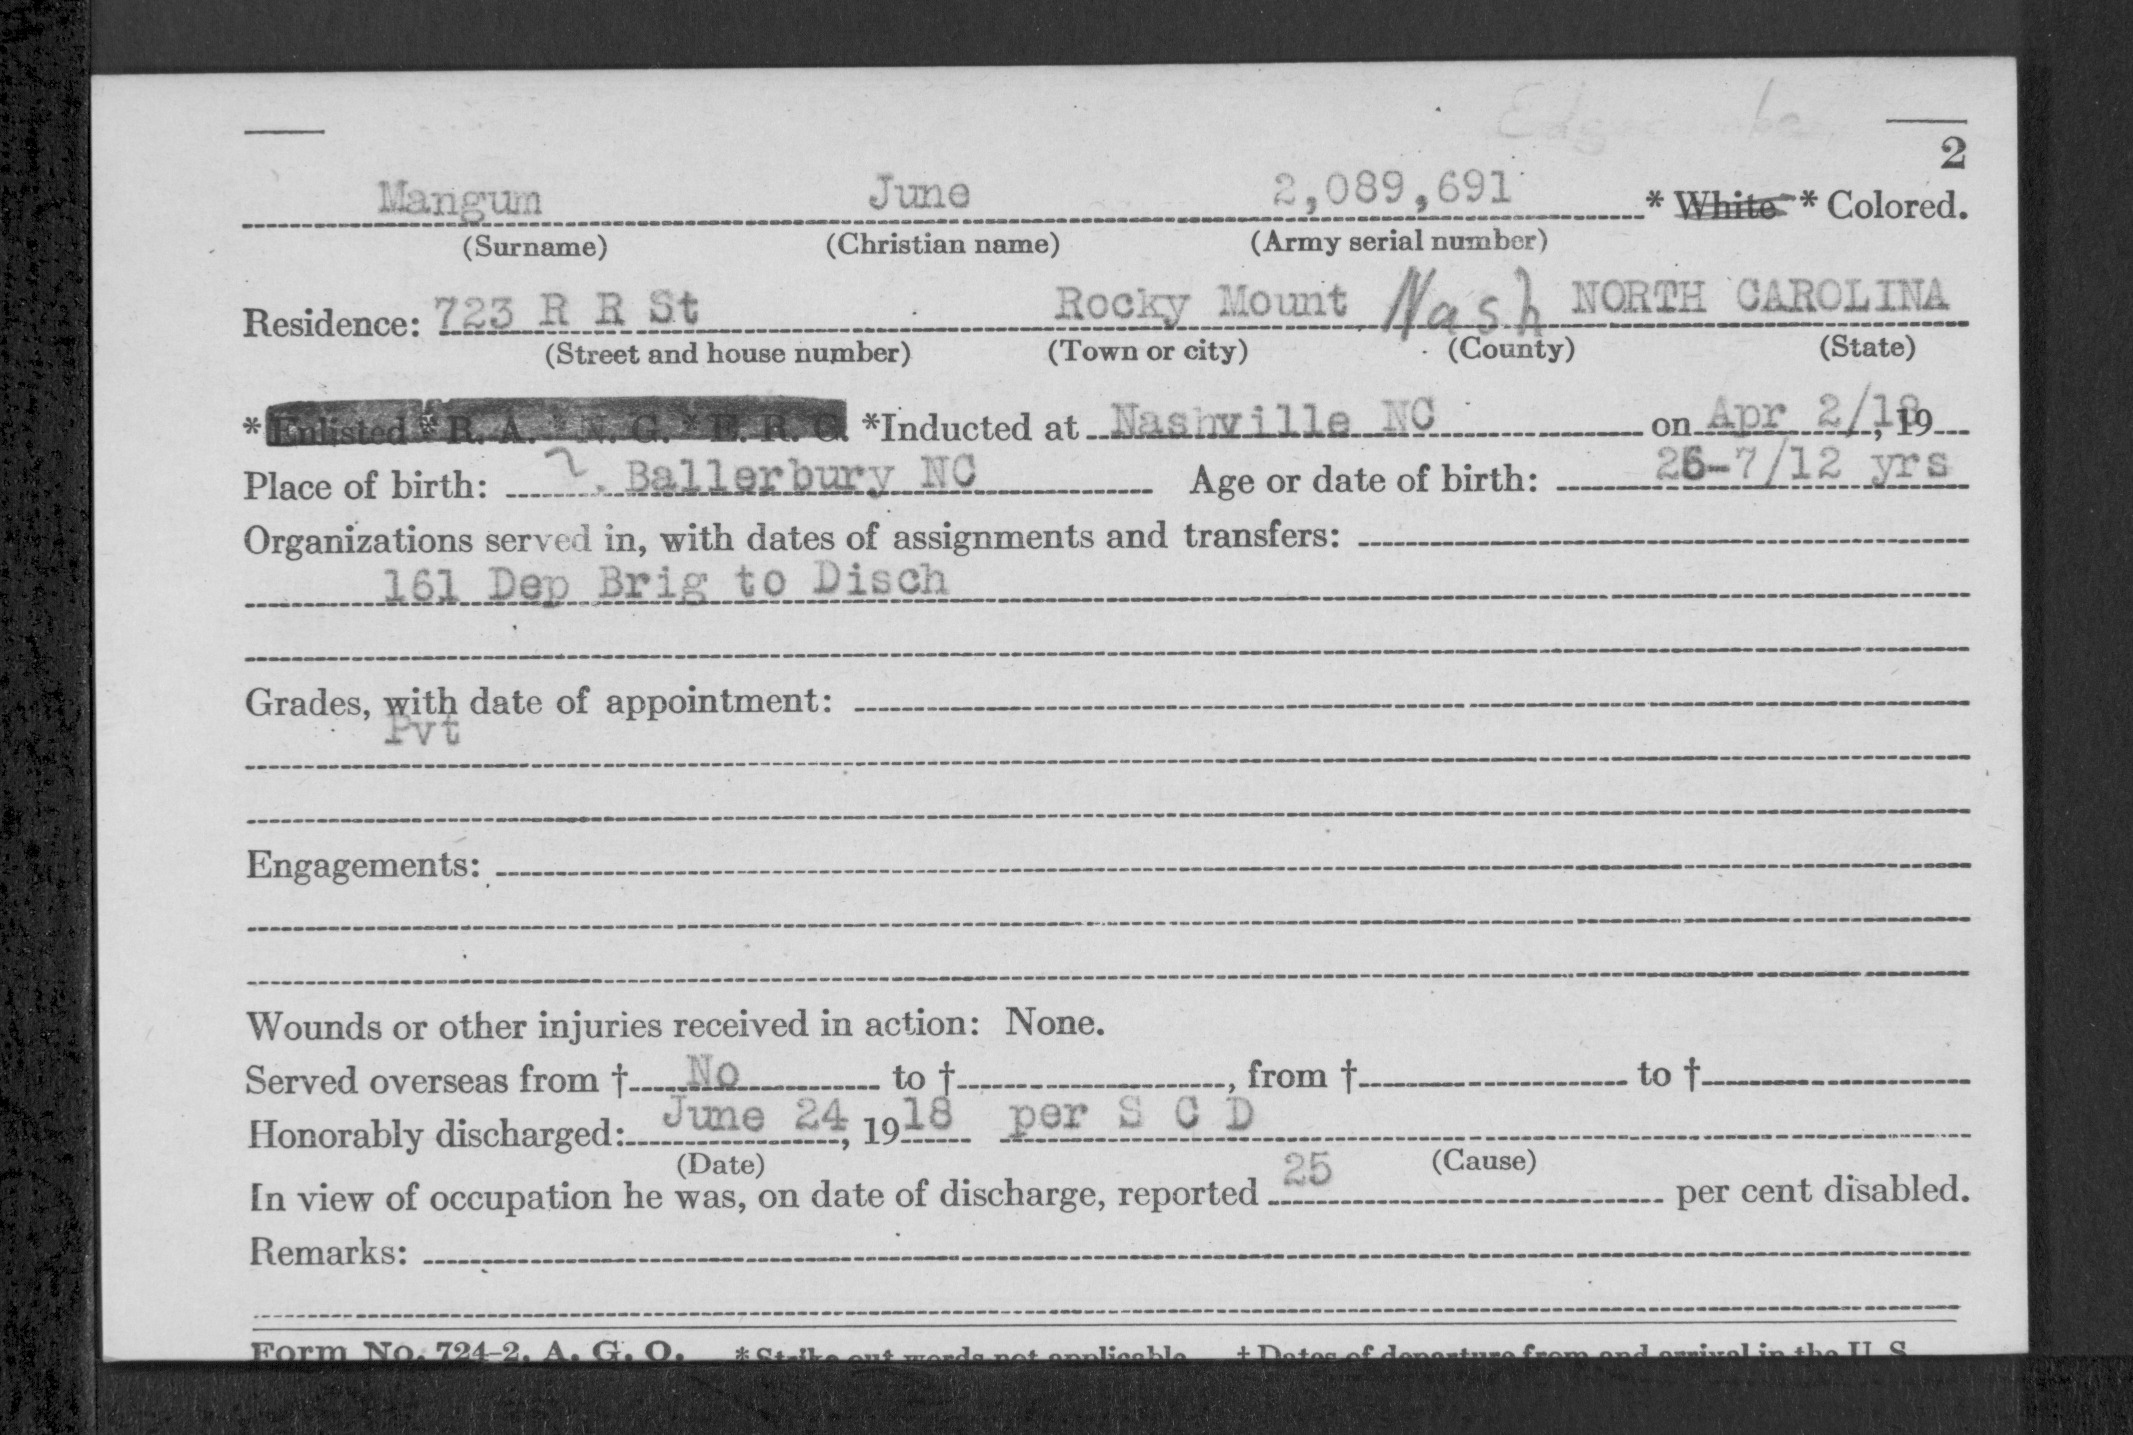 2
Mangum June 2,089,691 * White * Colored.
(Surname) (Christian name) (Army serial number)
Residence: 723 R R St Rocky Mount Nash NORTH CAROLINA
(Street and house number) (Town or city) (County) (State)
* Enlisted * R. A. * N. G. * E. R. C. *Inducted at Nashville NC on Apr 2/18, 19
Place of birth: ?. Ballerbury NC Age or date of birth: 26-7/12 yrs
Organizations served in, with dates of assignments and transfers:
161 Dep Brig to Disch
Grades, with date of appointment:
Pvt
Engagements:
Wounds or other injuries received in action: None.
Served overseas from † No to †, from † to †
Honorably discharged: June 24, 1918 per S C D
(Date) (Cause)
In view of occupation he was, on date of discharge, reported 25 per cent disabled.
Remarks:
Form No. 724-2, A. G. O. * Strike out words not applicable. † Dates of departure from and arrival in the U. S.